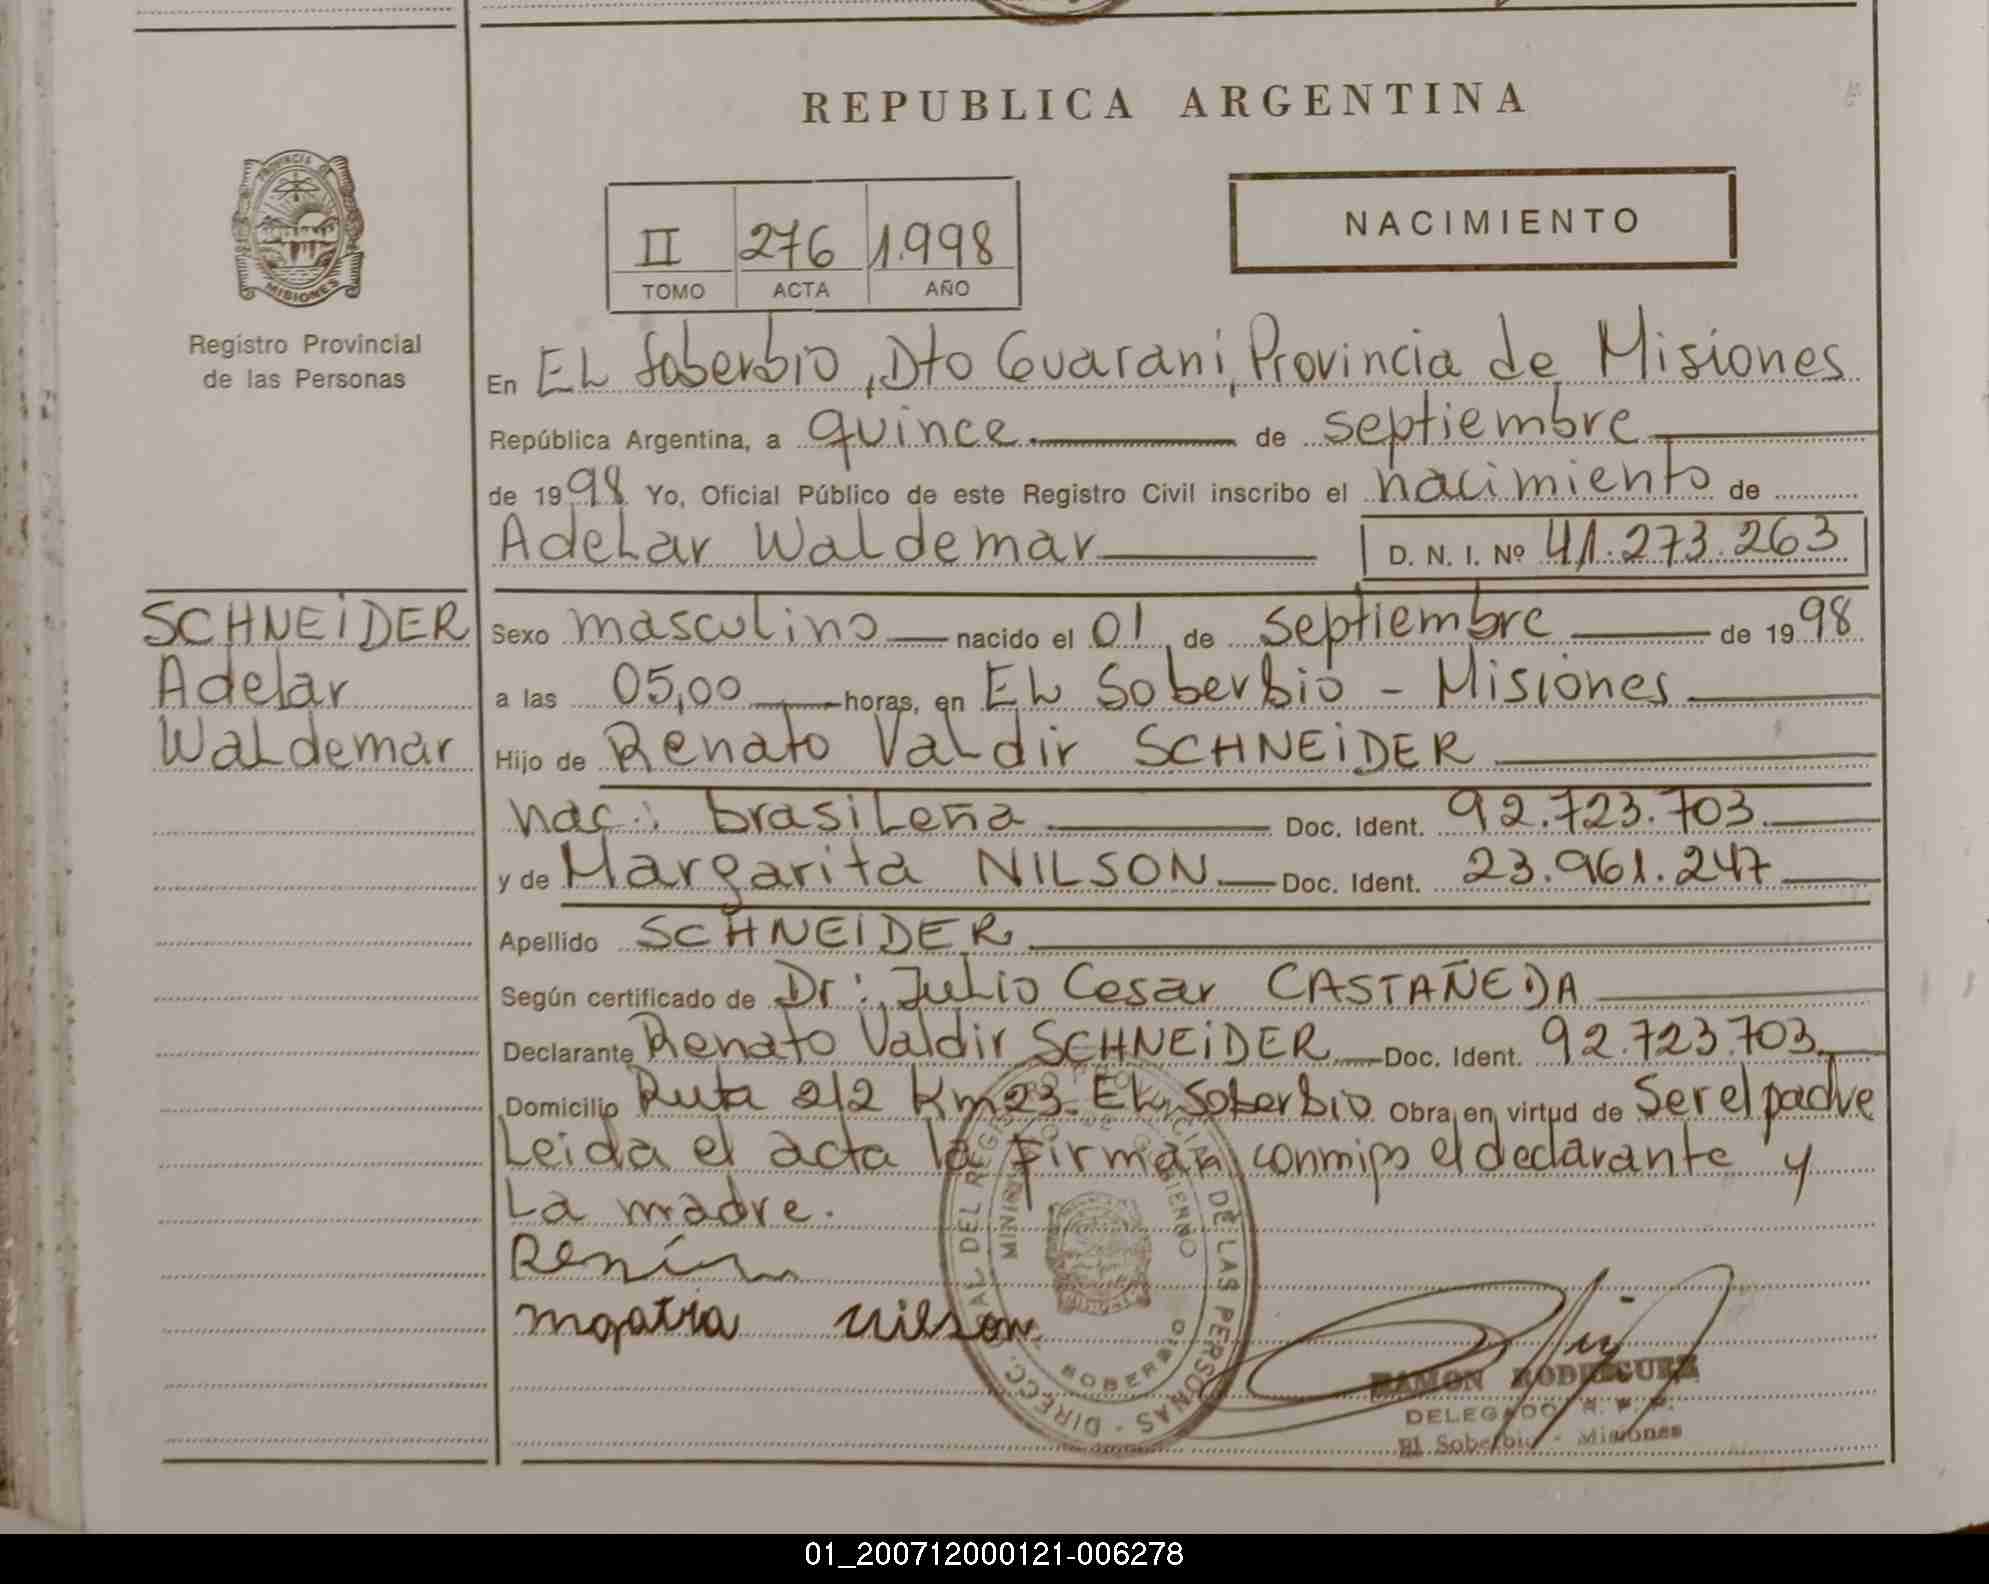 REPUBLICA ARGENTINA
PROVINCIA DE
MISIONES
Registro Provincial
de las Personas
II 276 1.998
TOMO ACTA AÑO
NACIMIENTO
En EL Soberbio, Dto Guarani, Provincia de Misiones
República Argentina, a quince de septiembre
de 1998 Yo, Oficial Público de este Registro Civil inscribo el nacimiento de
Adelar Waldemar D. N. I. Nº 41.273.263
SCHNEIDER
Adelar
Waldemar
Sexo masculino nacido el 01 de septiembre de 1998
a las 05,00 horas, en EL Soberbio - Misiones
Hijo de Renato Valdir SCHNEIDER
nac: brasileña Doc. Ident. 92.723.703
y de Margarita NILSON Doc. Ident. 23.961.247
Apellido SCHNEIDER
Según certificado de Dr: Julio Cesar CASTAÑEDA
Declarante Renato Valdir SCHNEIDER Doc. Ident. 92.723.703
Domicilio Ruta 212 Km 23 - EL Soberbio Obra en virtud de Ser el padre
Leida el acta la firman conmigo el declarante y
La madre.
nilson
DIRECC. DEL REG DE LAS PERSONAS
SOBERBIO
RAMON RODRIGUEZ
DELEGADO R. P. P.
El Soberbio - Misiones
01_200712000121-006278